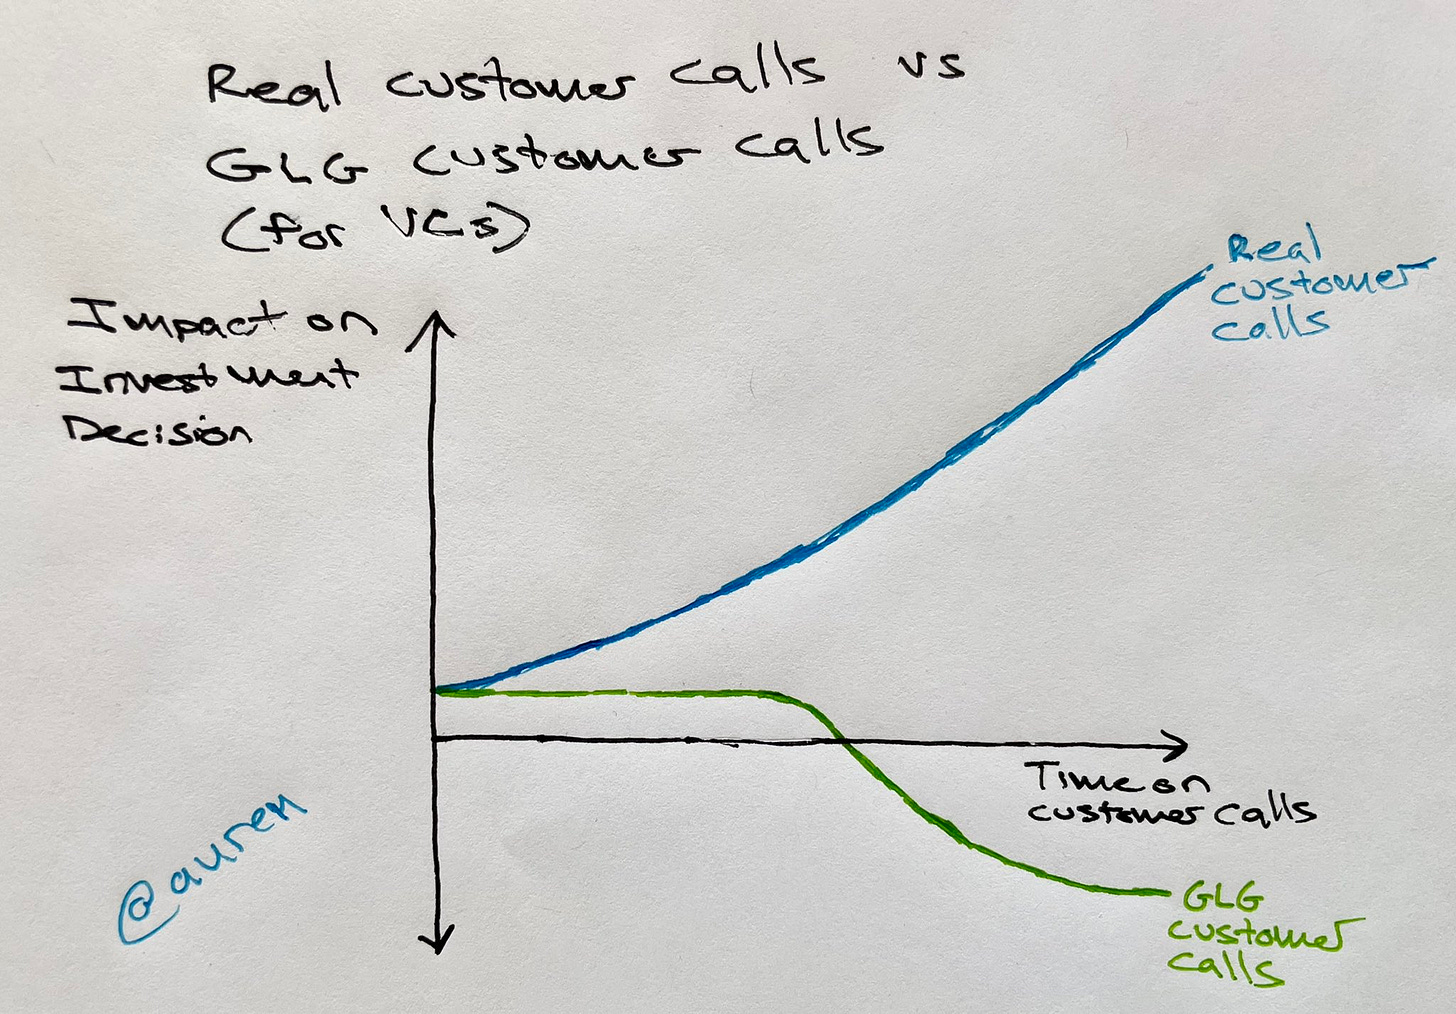 Real customer calls vs
GLG customer calls
(for VCs)
Impact on
Investment
Decision
Real
customer
calls
Time on
customer calls
@auren
GLG
customer
calls